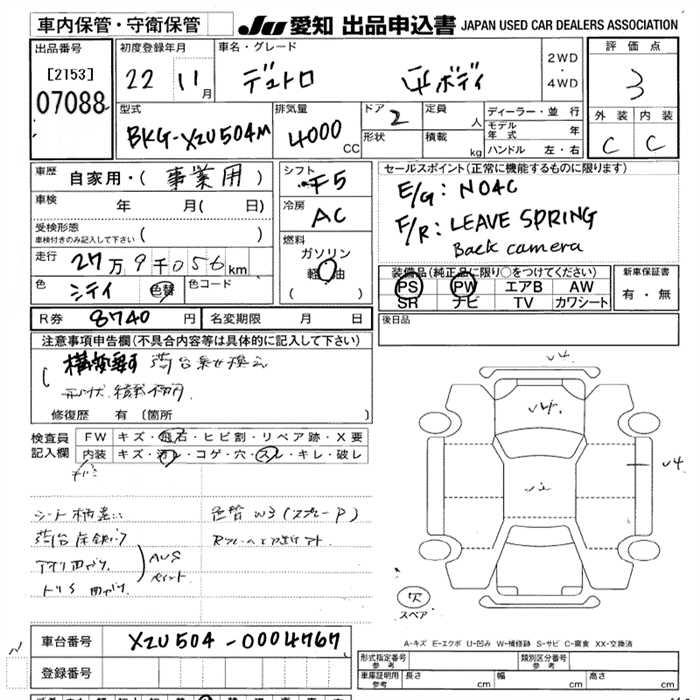 車内保管・守衛保管
JU 愛知 出品申込書 JAPAN USED CAR DEALERS ASSOCIATION
出品番号
[2153]
07088
初度登録年月
22 11月
車名・グレード
デュトロ 平ボディ
2WD
・
4WD
評価点
3
外装 内装
C C
型式
BKG-XZU504M
排気量
4000 CC
ドア 2
形状
定員 人
積載 kg
ディーラー・並行
モデル年式 年
ハンドル 左・右
車歴
自家用・( 事業用 )
車検 年 月( 日)
受検形態
車検付きのみ記入して下さい ( )
走行 27万9千056km
色 シテイ 色替 色コード
シフト F5
冷房 AC
燃料
ガソリン
軽油
( )
セールスポイント(正常に機能するものに限ります)
E/G: N04C
F/R: LEAVE SPRING
Back camera
装備品(純正品に限り○をつけてください)
PS PW エアB AW
SR ナビ TV カワシート
新車保証書
有・無
R券 8740円 名変期限 月 日
後日品
注意事項申告欄(不具合内容等は具体的に記入して下さい)
荷台乗せ換え
形状、積載不明
修復歴 有 (箇所 )
検査員
記入欄
FW キズ・飛石・ヒビ割・リペア跡・X要
内装 キズ・汚レ・コゲ・穴・スレ・キレ・破レ
シート柄違い
色替 W3 (スプレーP)
アオリ曲がり
AUS
ペイント
トリイ曲がり
U4
U4
スペア
A-キズ E-エクボ U-凹み W-補修跡 S-サビ C-腐食 XX-交換済
車台番号 XZU504-0004767
登録番号
形式指定番号
参考
類別区分番号
参考
車庫証明用
参考
長さ cm 幅 cm 高さ cm